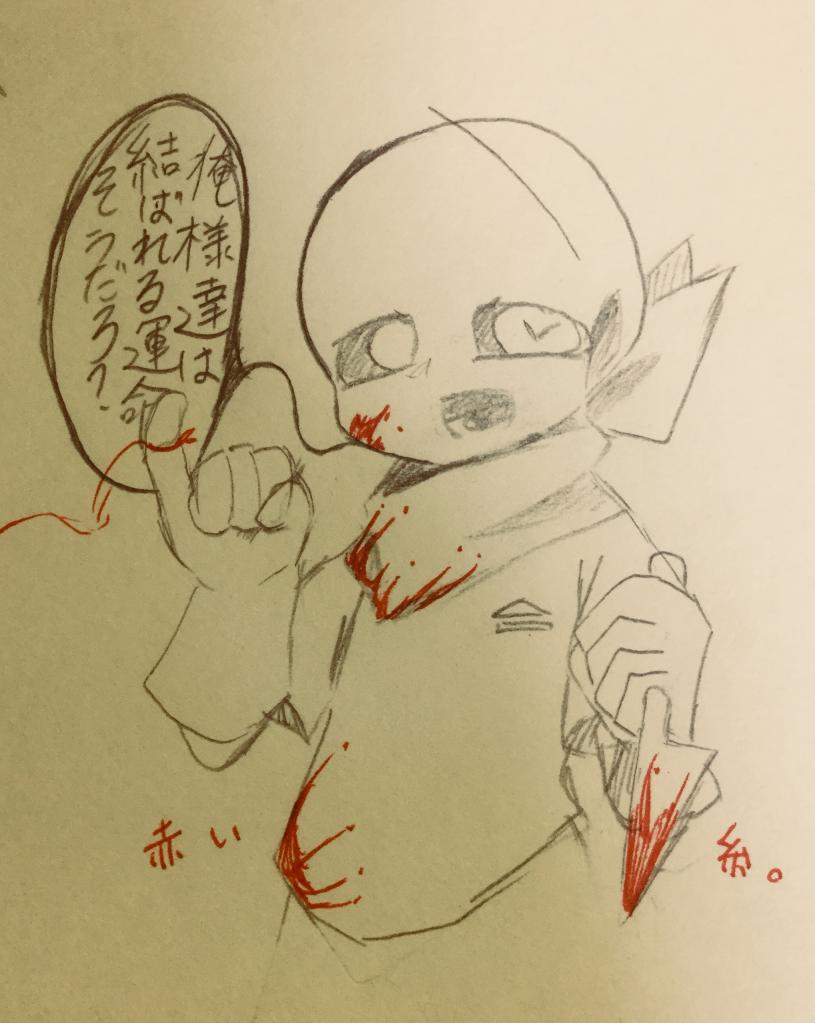 俺様達は
結ばれる運命
そうだろう?
赤い
糸。